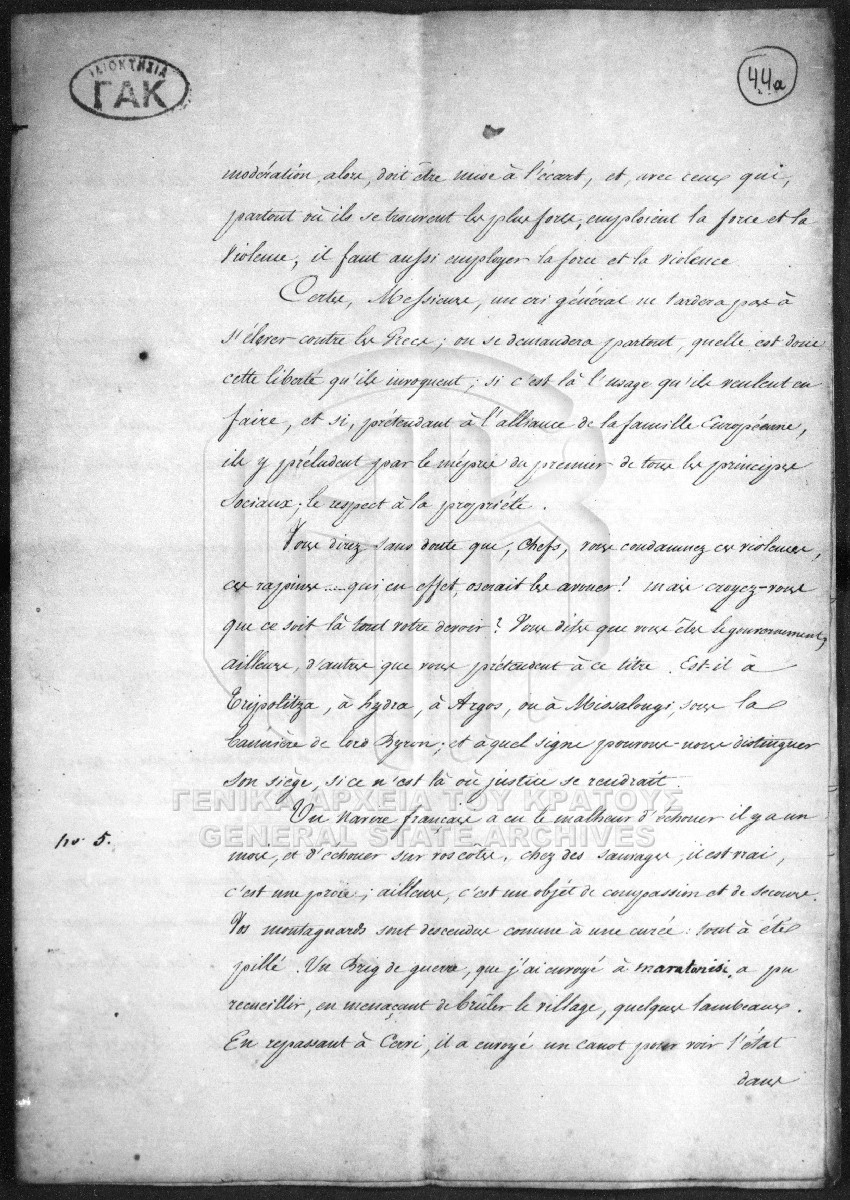 ΙΔΙΟΚΤΗΣΙΑ
ΓΑΚ
44a
modération, alors, doit être mise à l'écart, et, avec ceux qui,
partout où ils se trouvent les plus forts, emploient la force et la
violence, il faut aussi employer la force et la violence
Certes, Messieurs, un cri général ne tardera pas à
s'élever contre les Grecs; on se demandera partout, quelle est donc
cette liberté qu'ils invoquent; si c'est là l'usage qu'ils veulent en
faire, et si, prétendant à l'alliance de la famille Européenne,
ils y préludent par le mépris du premier de tous les principes
sociaux; le respect à la propriété.
Vous direz sans doute que, Chefs, vous condamnez ces violences,
ces rapines ..... qui en effet, oserait les armer! mais croyez-vous
que ce soit là tout votre devoir? Vous dites que vous êtes le gouvernement,
ailleurs, d'autres que vous prétendent à ce titre. Est il à
Tripolitza, à hydra, à Argos, ou à Missalongi, sous la
bannière de lord Byron; et à quel signe pourrons-nous distinguer
son siège, si ce n'est là où justice se rendrait.
ΓΕΝΙΚΑ ΑΡΧΕΙΑ ΤΟΥ ΚΡΑΤΟΥΣ
GENERAL STATE ARCHIVES
Un Navire français a eu le malheur d'échouer il y a un
no. 5.
mois, et d'échouer sur vos côtes, chez des sauvages, il est vrai,
c'est une proie; ailleurs, c'est un objet de compassion et de secours.
Vos montagnards sont descendus comme à une curée: tout à été
pillé. Un Brig de guerre, que j'ai envoyé à Maratonisi, a pu
recueillir, en menaçant de brûler le village, quelques lambeaux.
En repassant à Cervi, il a envoyé un canot pour voir l'état
dans